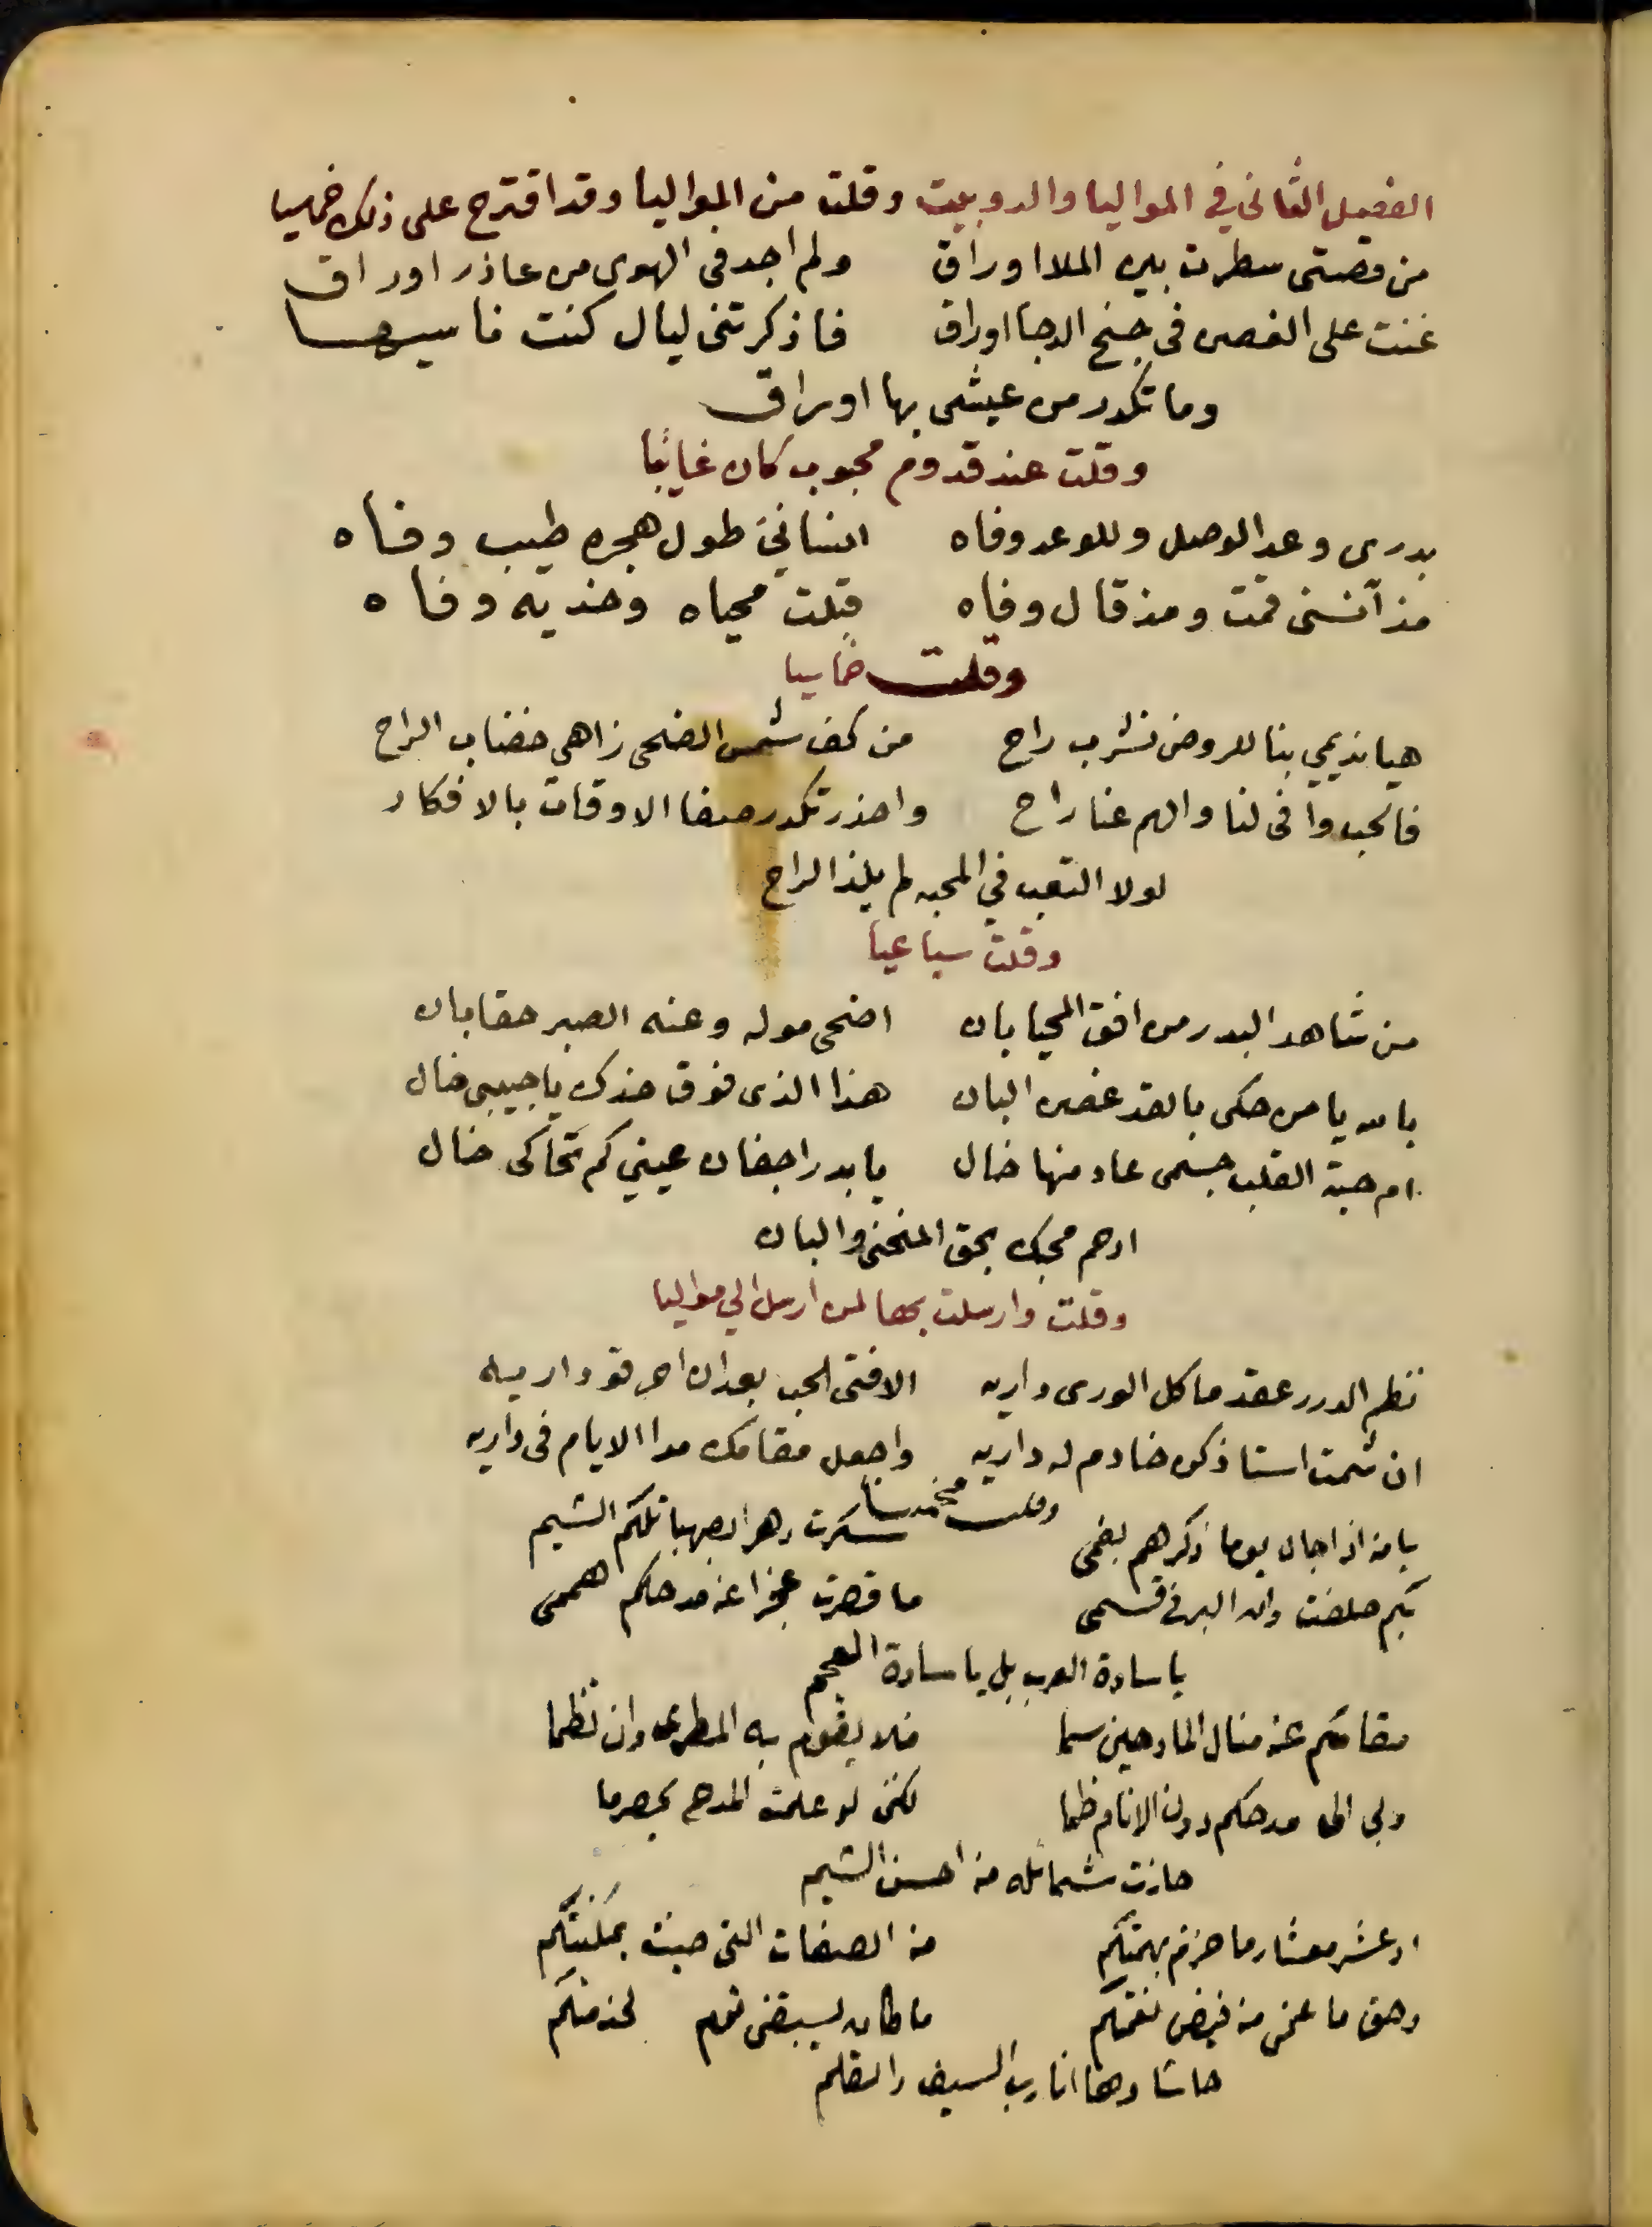 الفصل الثاني في المواليا والدوبيت وقلت من المواليا وقد اقترح على ذلك خماسيا
من قصتى سطرت بين الملا اوراق ولم اجد فى الهوى من عاذر اوراق
غنت على الغصن فى جنح الدجا اوراق فاذكرتنى ليال كنت ناسيها
وما تكدر من عيشى بها اوراق
وقلت عند قدوم محبوب كان غايبا
بدرى وعد الوصل وللوعد وفاه انسانى طول هجره طيب وفاه
مذ آنسنى قمت ومذ قال وفاه قبلت محياه وخديه وفاه
وقلت خماسيا
هيا نديمي بنا للروض نشرب راح من كف شمس الضحى زاهى خضاب الراح
فالحب وافى لنا والهم عنا راح واحذر تكدر صفا الاوقات بالافكار
لولا التعب في المحبه لم يلذ الراح
وقلت سباعيا
من شاهد البدر من افق المحيا بان اضحى موله وعنه الصبر حقا بان
بالله يا من حكى بالقد غصن البان هذا الذى فوق خدك يا حبيبى خال
ام حبة القلب جسمى عاد منها خال يا بدر اجفان عيني كم تحاكى خال
ارحم محبك بحق المنحنى والبان
وقلت وارسلت بها لمن ارسل الي مواليا
نظم الدرر عقد ما كل الورى داريه الا فتى الحب بعد ان احرقو داريه
ان شمت استاذ كن خادم له داريه واجعل مقامك مدا الايام فى داريه
وقلت مخمسا
يا من اذا جال يوما ذكرهم بفمى سكرت دهرا بصهبا تلكم الشيم
بكم حلفت وان البر فى قسمى ما قصرت عجزا عن مدحكم هممى
يا سادة العرب بل يا سادة العجم
مقامكم عن منال المادحين سما فلا يقوم به المطرى وان نظما
وبى الى مدحكم دون الانام ظما لكنى لو علمت المدح يحصر ما
حازت شمائله من احسن الشيم
او عشر معشار ما حزتم بهمتكم من الصفات التى
وحق ما عمنى من فيض نعمتكم ما كان يسبقنى قوم لخدمتكم
حاشا وها انا رب السيف والقلم